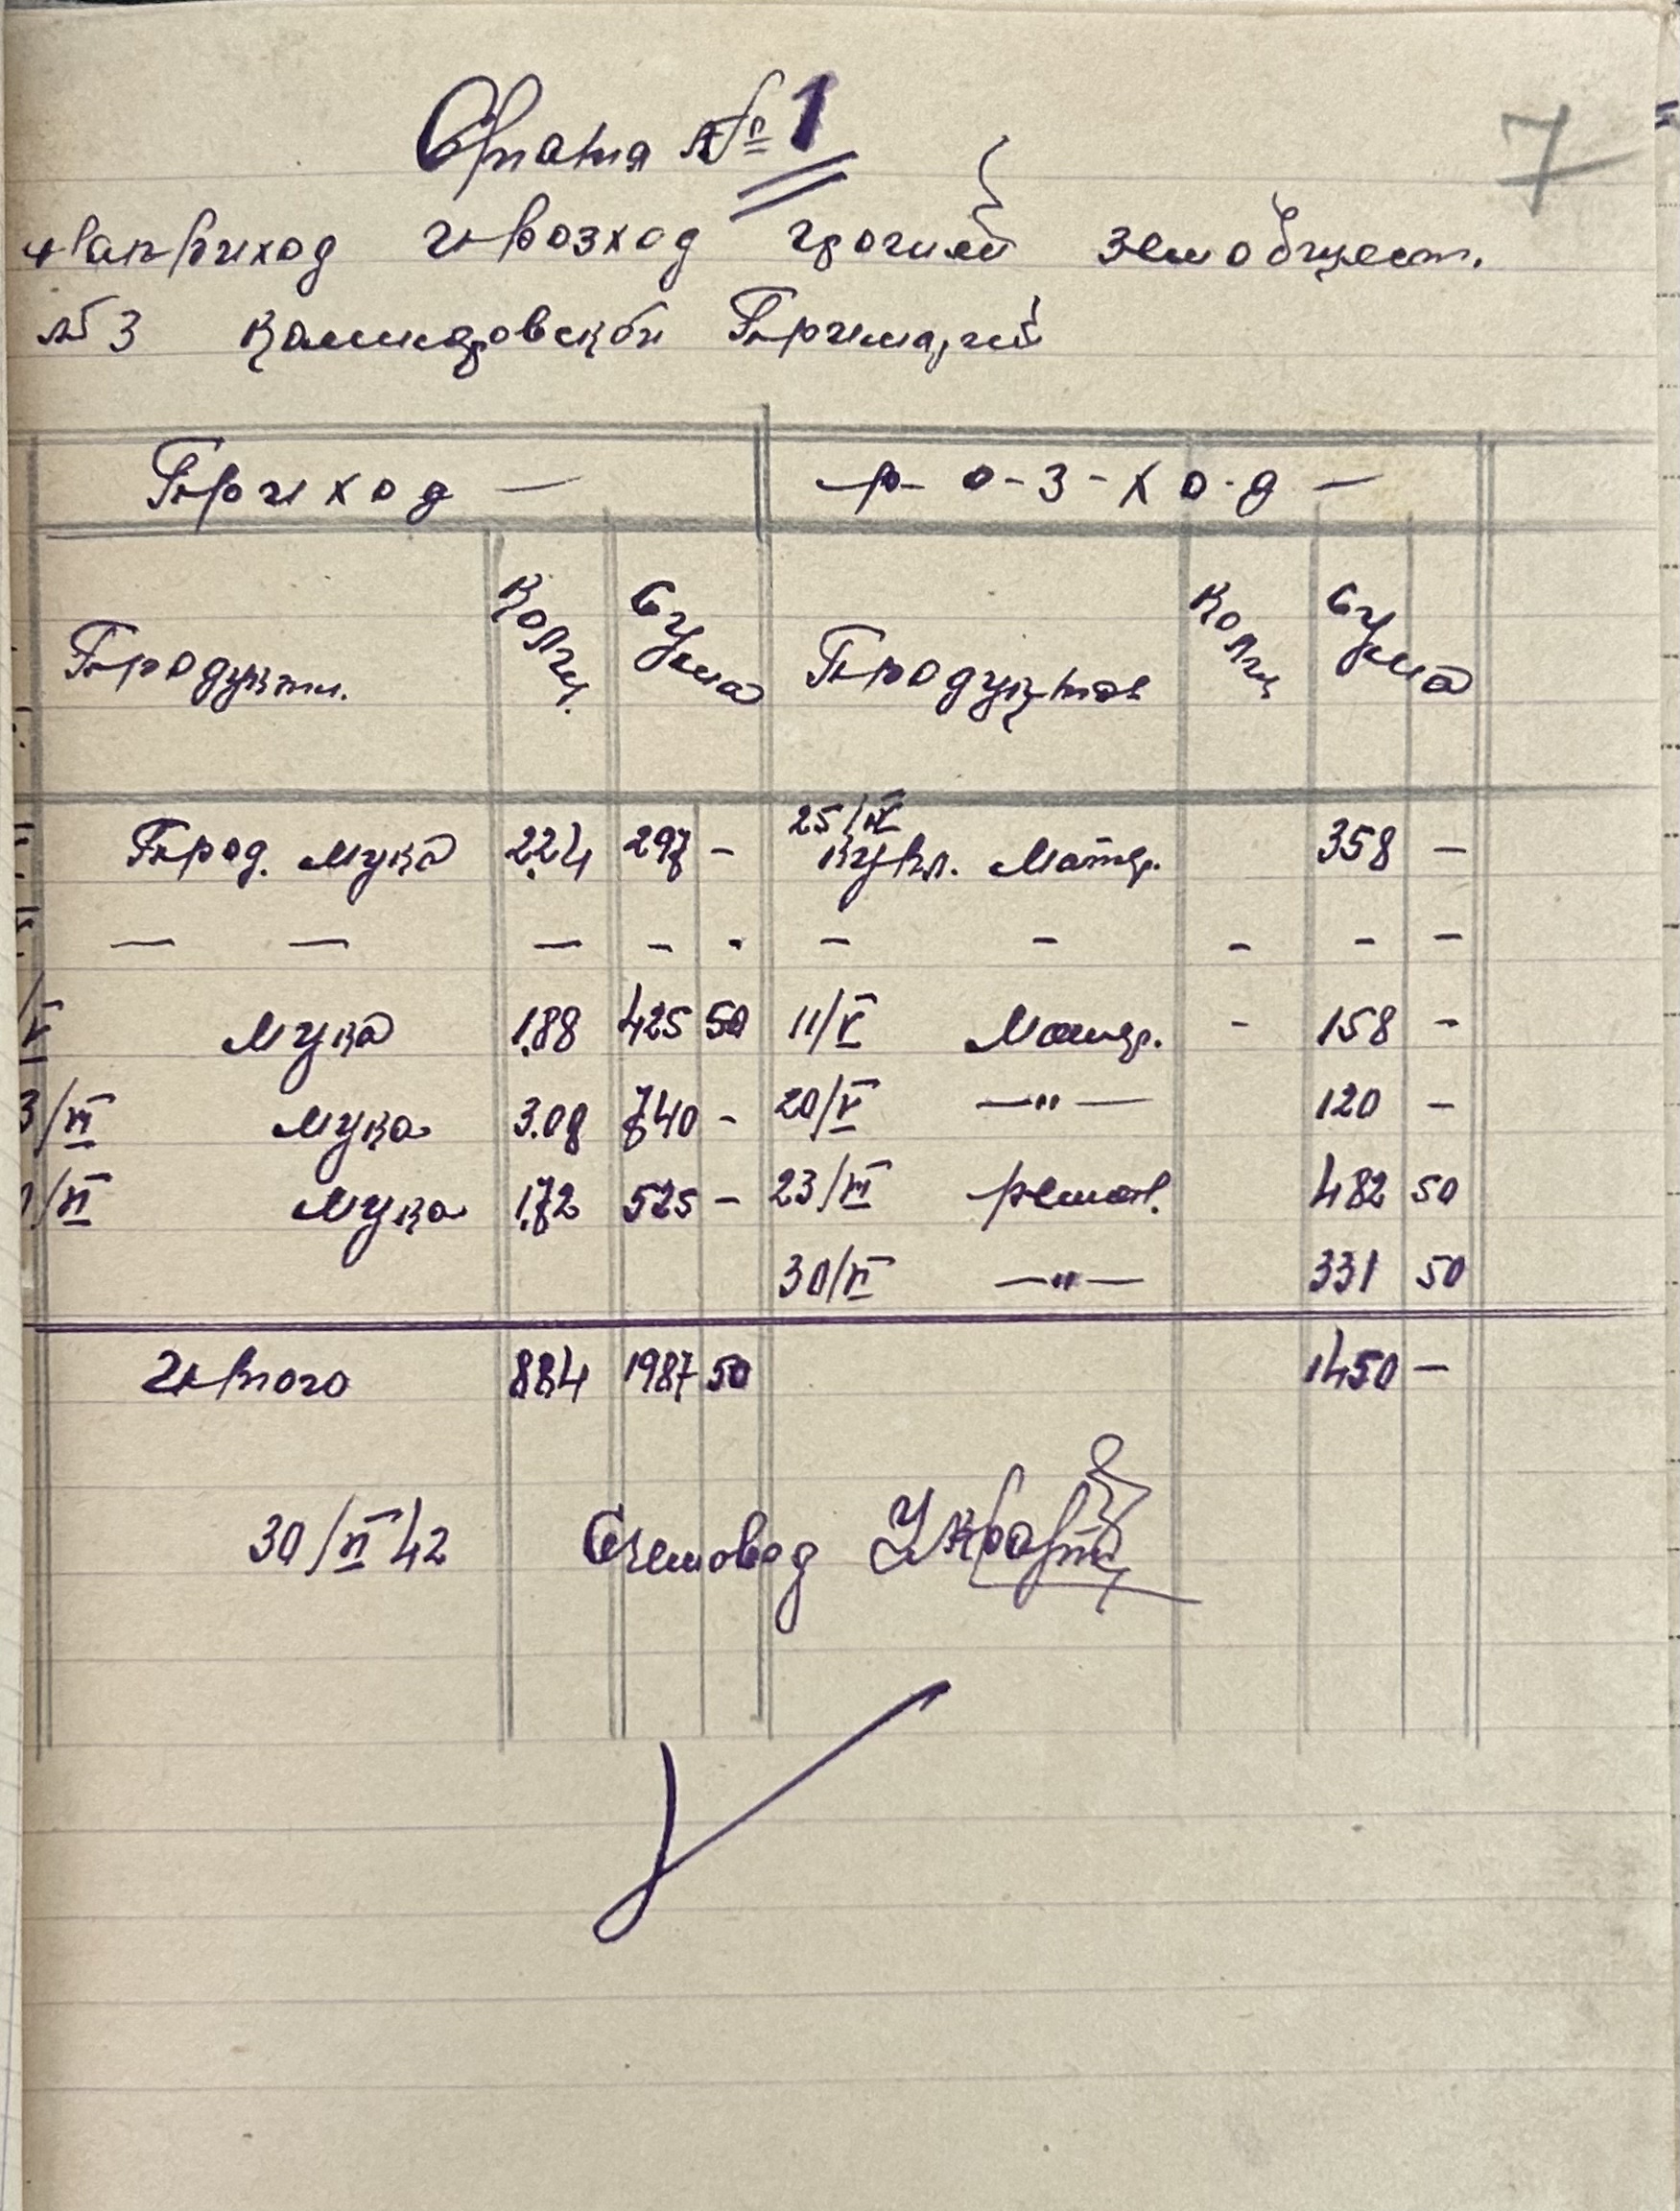 7
Справка № 1
на приход и розход грошей земобщест.
№ 3 Камидовской
Приход — р-о-з-х-о-д —
Продукти. Колич. Сума Продуктов Колич Сума
Прод. мука 2.24 297 - 25/IV Купл. Матер. 358 —
— — — - - - - - - -
/V Мука 1.88 425 50 11/V Матер. - 158 -
3/VI Мука 3.00 740 - 20/V —"— 120 -
/VI Мука 1.72 525 - 23/VI ремон. 482 50
30/VI —"— 331 50
Итого 884 1987 50 1450 —
30/VI 42 Счетовод